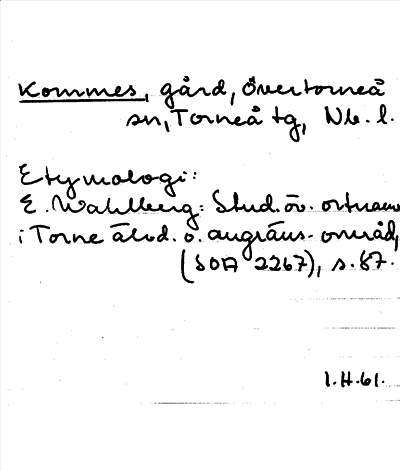 Kommes, gård, Övertorneå
sn, Torneå tg, Nb. l.
Etymologi:
E. Wahlberg: Stud. öv. ortnamn
i Torne älvd. o. angräns. områd,
(SOA 2267), s. 87.
1.H.61.